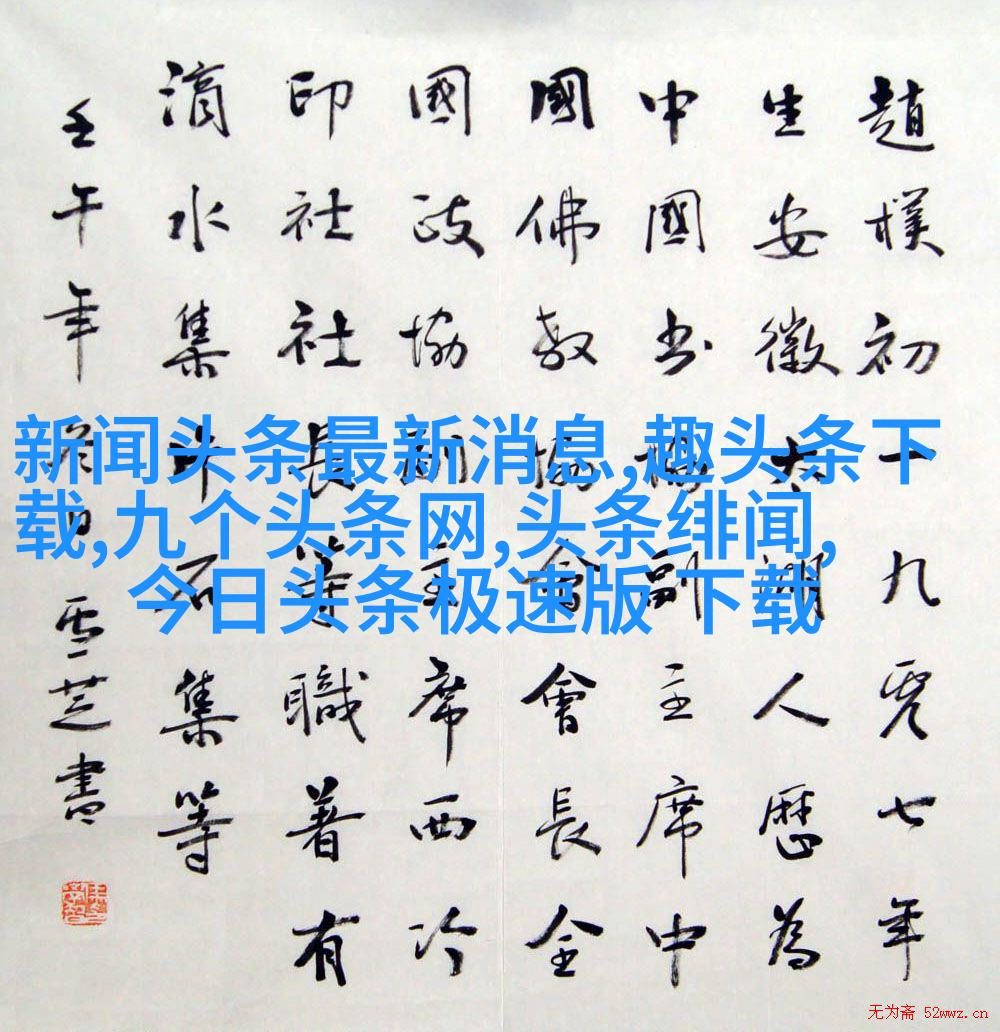 趙樸初一九零七年
生安徽太湖人歷為
中國书協副主席中
國佛教協會會長全
國政協副主席西冷
印社社長等職著有
滴水集片石集等
壬午年 雪芝書
新闻头条最新消息,趣头条下
载,九个头条网,头条绯闻,
今日头条极速版 下载
无为斋 52wwz.cn